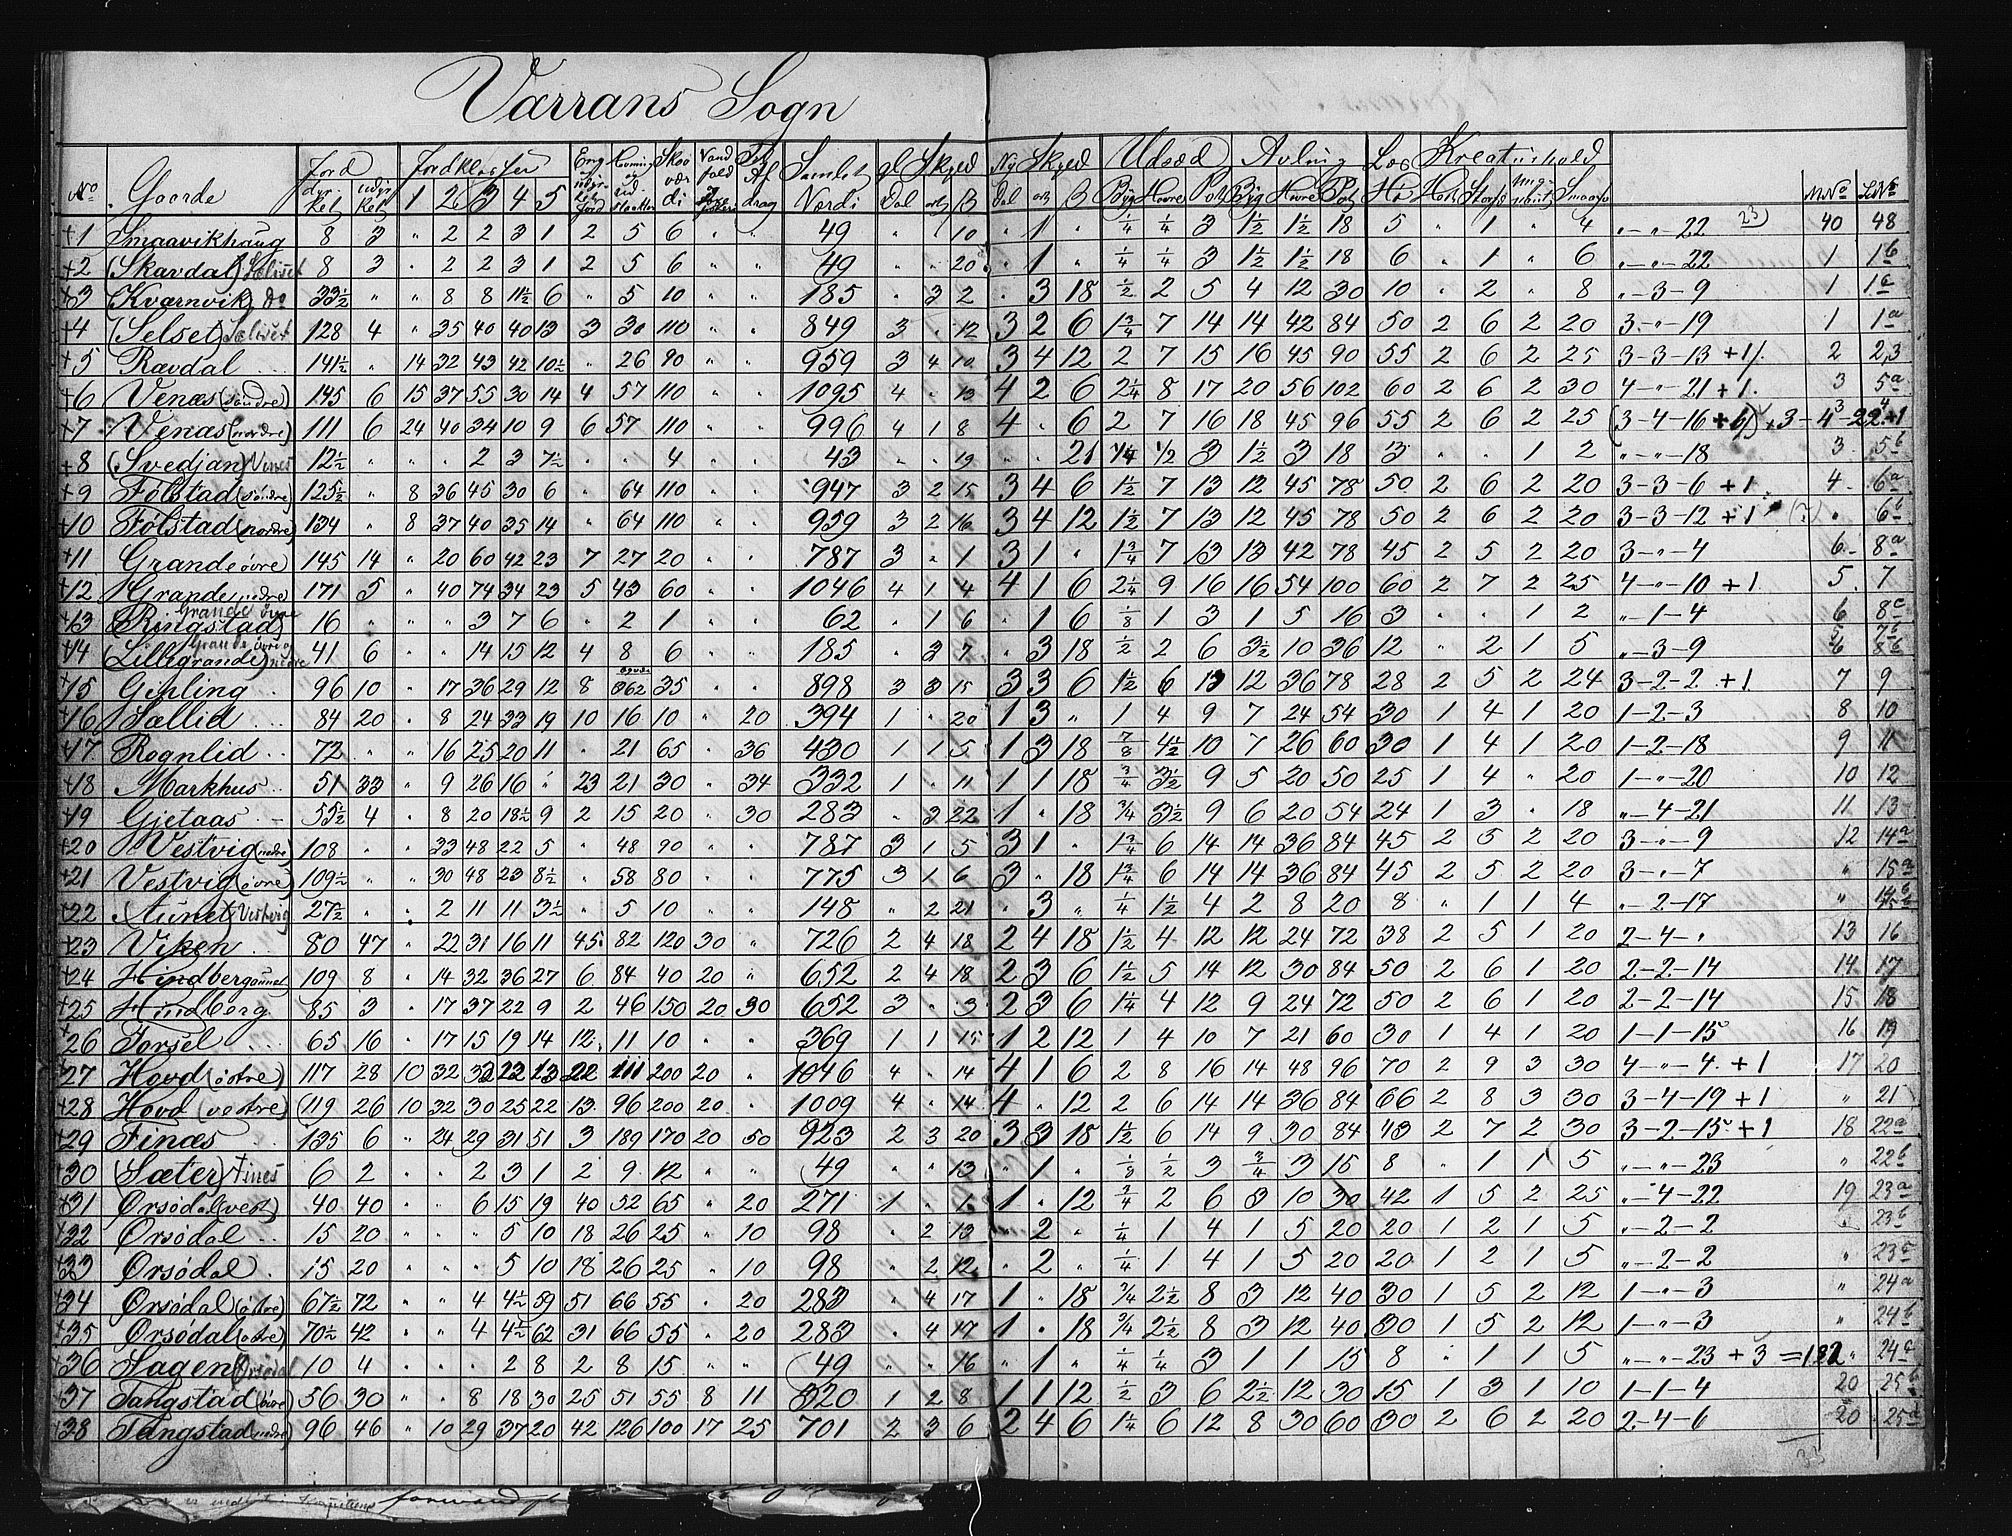 Værrans Sogn
No Gaarde Jord dyrket udyrket Jordklasser 1 2 3 4 5 Eng Havning Skov værdi Vandfald Afdrag Samlet Værdi gl Skyld Dal ort ß Ny Skyld Dal ort ß Udsæd Byg Havre Pot Avling Byg Havre Pot Læs Hø Kreaturhold Hest Storfe Ungnaut Smaafe MNo LNo
+1 Smaavikhaug 8 3 " 2 2 3 1 2 5 6 " " 49 " " 10 " 1 " ¼ ¼ 3 1½ 1½ 18 5 " 1 " 4 "-"-22 23) 40 48
+2 (Skavdal) Sæliset 8 3 " 2 2 3 1 2 5 6 " " 49 " " 20 " 1 " ¼ ¼ 3 1½ 1½ 18 6 " 1 " 6 "-"-22 1 1b
+3 (Kværnvik) do 33½ " " 8 8 11½ 6 " 5 10 " " 185 " 3 2 " 3 18 ½ 2 5 4 12 30 10 " 2 " 8 "-3-9 1 1c
+4 (Selset) Sæliset 128 4 " 35 40 40 13 3 30 110 " " 849 3 " 12 3 2 6 1¾ 7 14 14 42 84 50 2 6 2 20 3-"-19 1 1a
+5 Ravdal 141½ " 14 32 43 42 10½ " 26 90 " " 959 3 4 10 3 4 12 2 7 15 16 45 90 55 2 6 2 25 3-3-13 +1/. 2 2,3
+6 Venæs (søndre) 145 6 15 37 55 30 14 4 57 110 " " 1095 4 " 13 4 2 6 2¼ 8 17 20 56 102 60 2 6 2 30 4-"-21 +1. 3 5a
+7 Venæs (nordre) 111 6 24 40 34 10 9 6 57 110 " " 996 4 1 8 4 " 6 2 7 16 18 45 96 55 2 6 2 25 (3-4-16 +1) +3-4-22+1 3 4
+8 (Svedjan) Venes 12½ " " " 2 3 7½ " " 4 " " 43 " " 19 " " 21 ¼ ½ 3 1½ 3 18 3 " " 1 2 "-"-18 3 5b
+9 Følstad (søndre) 125½ " 8 36 45 30 6 " 64 110 " " 947 3 2 15 3 4 6 1½ 7 13 12 45 78 50 2 6 2 20 3-3-6 +1 4 6a
+10 Følstad (nordre) 134 " 8 37 40 35 14 " 64 110 " " 959 3 2 16 3 4 12 1½ 7 13 12 45 78 50 2 6 2 20 3-3-12 +1 (?) " 6b
+11 Grande øvre 145 14 " 20 60 42 23 7 27 20 " " 787 3 " 1 3 1 " 1¾ 7 13 13 42 78 45 2 5 2 20 3-"-4 6 8a
+12 Grande nedre 171 5 " 40 74 34 23 5 43 60 " " 1046 4 1 4 4 1 6 2¼ 9 16 16 54 100 60 2 7 2 25 4-"-10 +1 5 7
+13 (Ringstad) Grande øvre 16 " " " 3 7 6 " 2 1 " " 62 " 1 6 " 1 6 ⅛ 1 3 1 5 16 3 " " 1 2 "-1-4 6 8c
+14 (Lillegrande) Grande øvre og nedre 41 6 " " 14 15 12 4 8 6 " " 185 " 3 7 " 3 18 ½ 2 6 3½ 10 36 12 " 2 1 5 "-3-9 5 6 7b 8b
+15 Gipling 96 10 " 17 36 29 12 8 362 35 " " 898 3 3 15 3 3 6 1½ 6 13 12 36 78 28 2 5 2 24 3-2-2 +1 7 9
+16 Sællid 84 20 " 8 24 33 19 10 16 10 " 20 394 1 " 20 1 3 " 1 4 9 7 24 54 30 1 4 1 20 1-2-3 8 10
+17 Rognlid 72 " " 16 25 20 11 " 21 65 " 36 430 1 1 5 1 3 18 ⅞ 4½ 10 7 26 60 30 1 4 1 20 1-2-18 9 11
+18 Markhus 51 33 " 9 26 16 " 23 21 30 " 34 332 1 " 11 1 1 18 ¾ 3½ 9 5 20 50 25 1 4 " 20 1-"-20 10 12
+19 Gjetaas 55½ 4 " 8 20 18½ 9 2 15 20 " 30 283 " 3 22 1 " 18 ¾ 3½ 9 6 20 54 24 1 3 " 18 "-4-21 11 13
+20 Vestvig (nedre) 108 " " 33 48 22 5 " 48 90 " " 787 3 1 5 3 1 " 1¾ 6 14 14 36 84 45 2 5 2 20 3-"-9 12 14a
+21 Vestvig (øvre) 109½ " " 30 48 23 8½ " 58 80 " " 775 3 1 6 3 " 18 1¾ 6 14 14 36 84 45 2 5 2 20 3-"-7 " 15a
+22 (Aunet) Vestvig 27½ " " 2 11 11 3½ " 5 10 " " 148 " 2 21 " 3 " ¼ 1½ 4 2 8 20 8 " 1 1 4 "-2-17 "
+23 Viken 80 47 " 22 31 16 11 45 82 120 30 " 726 2 4 18 2 4 18 1½ 4 12 12 24 72 38 2 5 1 20 2-4-" 13 16
+24 Hindbergaunet 109 8 " 14 32 36 27 6 84 40 20 " 652 2 4 18 2 3 6 1½ 5 14 12 30 84 50 2 6 1 20 2-2-14 14 17
+25 Hindberg 85 3 " 17 37 22 9 2 46 150 20 30 652 3 " 3 2 3 6 1¼ 4 12 9 24 72 50 2 6 1 20 2-2-14 15 18
+26 Forsel 65 16 " 17 15 19 14 12 11 10 " " 369 1 1 15 1 2 12 1 4 10 7 21 60 30 1 4 1 20 1-1-15 16 19
+27 Hovd (østre) 117 28 10 32 32 22 13 22 111 200 20 " 1046 4 " 14 4 1 6 2 8 16 14 48 96 70 2 9 3 30 4-"-4 +1 17 20
+28 Hovd (vestre) 119 26 10 32 30 25 22 13 96 200 20 " 1009 4 " 14 4 " 12 2 6 14 14 36 84 66 2 8 3 30 3-4-19 +1 " 21
+29 Finæs 135 6 " 24 29 31 51 3 189 170 20 50 923 2 3 20 3 3 18 1½ 6 14 9 30 84 43 2 7 2 30 3-2-15 +1 18 22a
+30 (Sæter) Fines 6 2 " " 2 3 1 2 9 12 " " 49 " " 13 " 1 " ⅛ ½ 3 ¾ 3 15 8 " 1 1 5 "-"-23 " 22b
+31 Ørsødal (vest) 40 40 " " 6 15 19 40 52 65 " 20 271 1 " 1 1 " 12 ¾ 2 6 3 10 30 42 1 5 2 25 "-4-22 19 23a
+32 Ørsødal 15 20 " " " 5 10 18 26 25 " 10 98 " 2 13 " 2 " ¼ 1 4 1 5 20 20 1 2 1 5 "-2-2 " 23b
+33 Ørsødal 15 20 " " " 5 10 18 26 25 " 10 98 " 2 12 " 2 " ¼ 1 4 1 5 20 20 1 2 1 5 "-2-2 " 23c
+34 Ørsødal (østre) 67½ 72 " " 4 4½ 59 51 66 55 " 20 283 " 4 17 1 " 18 ¾ 2½ 8 3 12 40 30 1 5 2 12 1-"-3 " 24a
+35 Ørsødal (østre) 70½ 42 " " 4 4½ 62 31 66 55 " 20 283 " 4 17 1 " 18 ¾ 2½ 8 3 12 40 30 1 5 2 12 1-"-3 " 24b
+36 Sagen (Ørsødal 10 4 " " " 2 8 2 8 15 " " 49 " " 16 " 1 " ¼ ¼ 3 1 1 15 8 " 1 1 5 "-"-23 +3 =182 " 24c
+37 Tangstad (øvre) 56 30 " " 8 18 30 25 51 55 8 11 320 1 2 8 1 1 12 ½ 3 6 2½ 12 30 15 1 3 1 10 1-1-4 20 25b
+38 Tangstad (nedre) 96 46 " 10 29 37 20 42 126 100 17 25 701 2 3 6 2 4 6 1¼ 6 12 8 30 60 30 2 6 2 20 2-4-6 20 25a